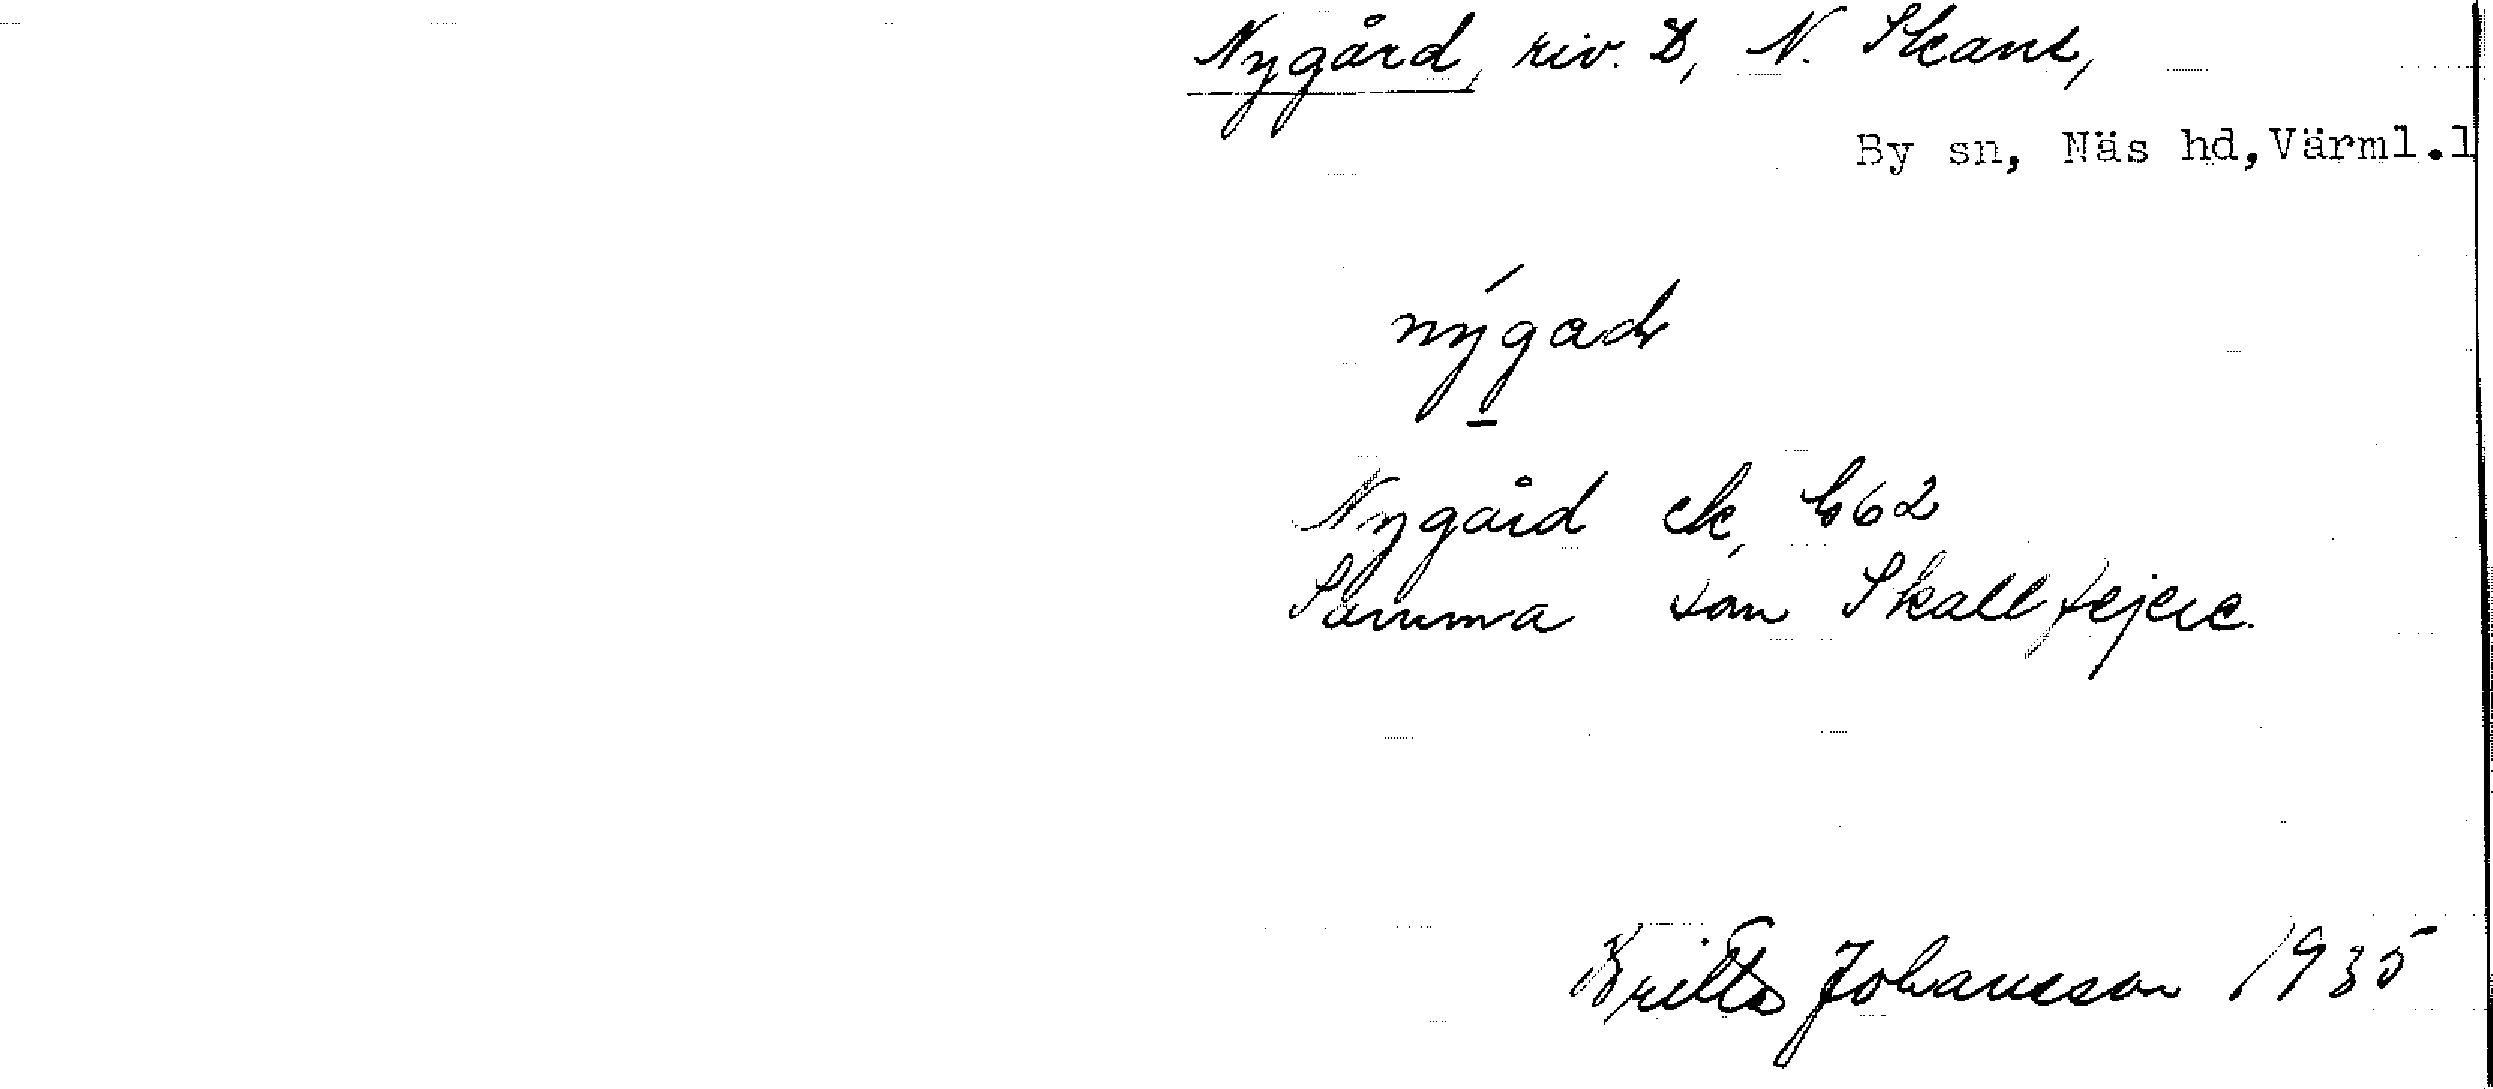 Nygård, riv. D, N. Skans,
By sn, Näs hd,Värml.l
nýgaɖ
Nygård ek, b62
Samma som Skalltejere.
Britta Johansson 1935